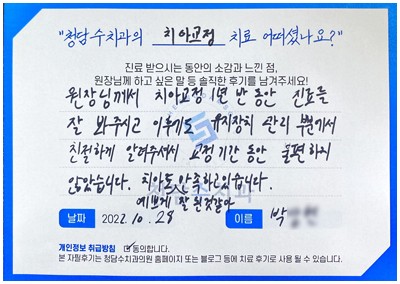 "청담수치과의 치아교정 치료 어떠셨나요?"
진료 받으시는 동안의 소감과 느낀 점,
원장님께 하고 싶은 말 등 솔직한 후기를 남겨주세요!
원장님께서 치아교정 1년 반 동안 진료를
잘 봐주시고 이후에도 유지장치 관리 뿐께서
친절하게 알려주셔서 교정 기간 동안 불편하지
않았습니다. 치아도 만족하고있습니다.
예쁘게 잘 된것같아
날짜 2022. 10. 28 이름 박
개인정보 취급방침 ☑ 동의합니다.
본 자필후기는 청담수치과의원 홈페이지 또는 블로그 등에 치료 후기로 사용 될 수 있습니다.